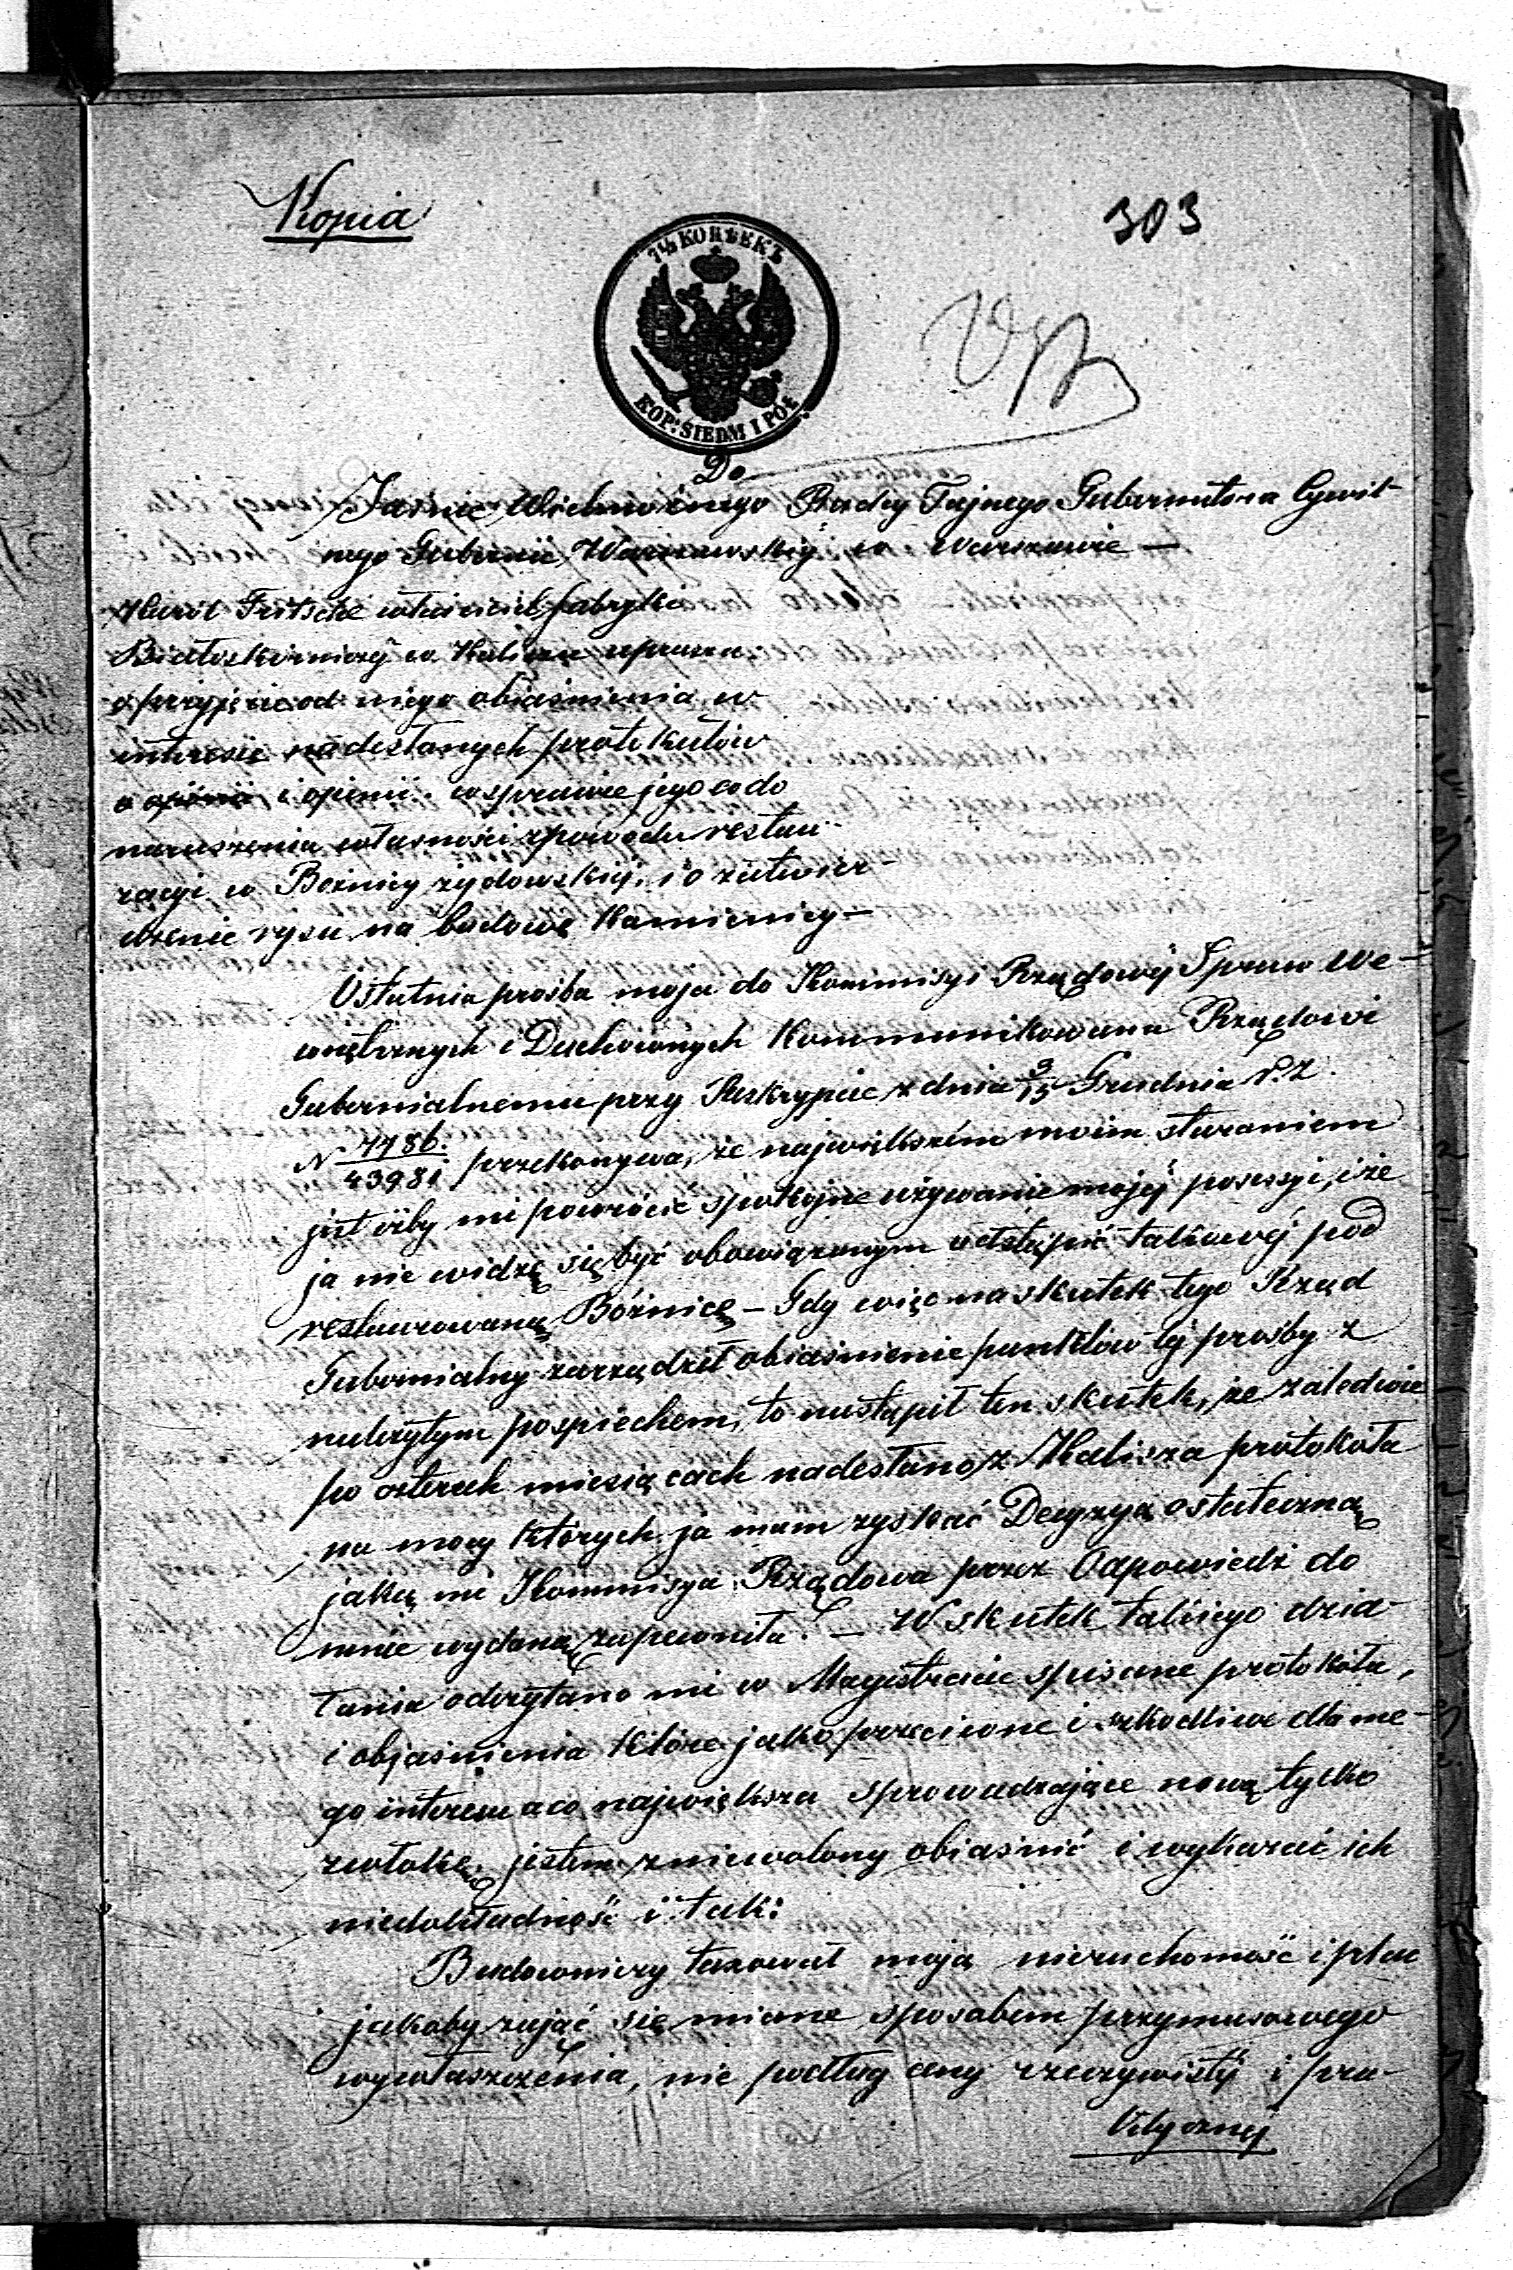 Kopia
303
7½ КОПѢЕКЪ
KOP: SIEDM I PÓŁ
Do
Jaśnie Wielmożnego Radcy Tajnego Gubernatora Cywil-
nego Gubernii Warszawskiéj w Warszawie —
Karól Fritsche właściciel fabryki
Białoskórniczéj w Kaliszu uprasza
o przyjęcie od niego obiaśnienia w
interesie nadesłanych protokułów
i opinii w sprawie jego co do
naruszenia własności z powodu restau-
racyi w Bożnicy żydowskiéj, i o zatwier-
dzenie rysu na budowę Kamienicy —
Ostatnia prośba moja do Kommisyi Rządowéj Spraw We-
wnętrznych i Duchownych Kommunikowana Rządowi
Gubernialnemu przy Reskrypcie z dnia 3/15 Grudnia r. z.
N 7786/43981 przekonywa, że największém moim staraniem
jest iżby mi powrócić spokojne używanie mojéj posessyi, i że
ja nie widzę się być obowiązanym odstąpić takowéj pod
restaurowaną Bóżnicę — Gdy więc na skutek tego Rząd
Gubernialny zarządził obiaśnienie punktów téj prośby z
należytym pospiechem, to nastąpił ten skutek, że zaledwie
po czterech miesiącach nadesłano z Kalisza protokóła
na mocy których ja mam zyskać Decyzyą ostateczną
jaką mi Kommisya Rządowa przez Odpowiedź do
mnie wydaną zapewniła. — W skutek takiego dzia-
łania odczytano mi w Magistracie spisane protokóła,
i objaśnienia które jako przeciwne i szkodliwe dla me-
go interesu a co największa sprowadzające nową tylko
zwłokę, jestem zniewolony obiaśnić i wykazać ich
niedokładność i tak:
Budowniczy taxował moją nieruchomość i plac
jakoby zająć się miane sposobem przymusowego
wywłaszczenia, nie podług ceny rzeczywistéj i pra-
ktycznéj